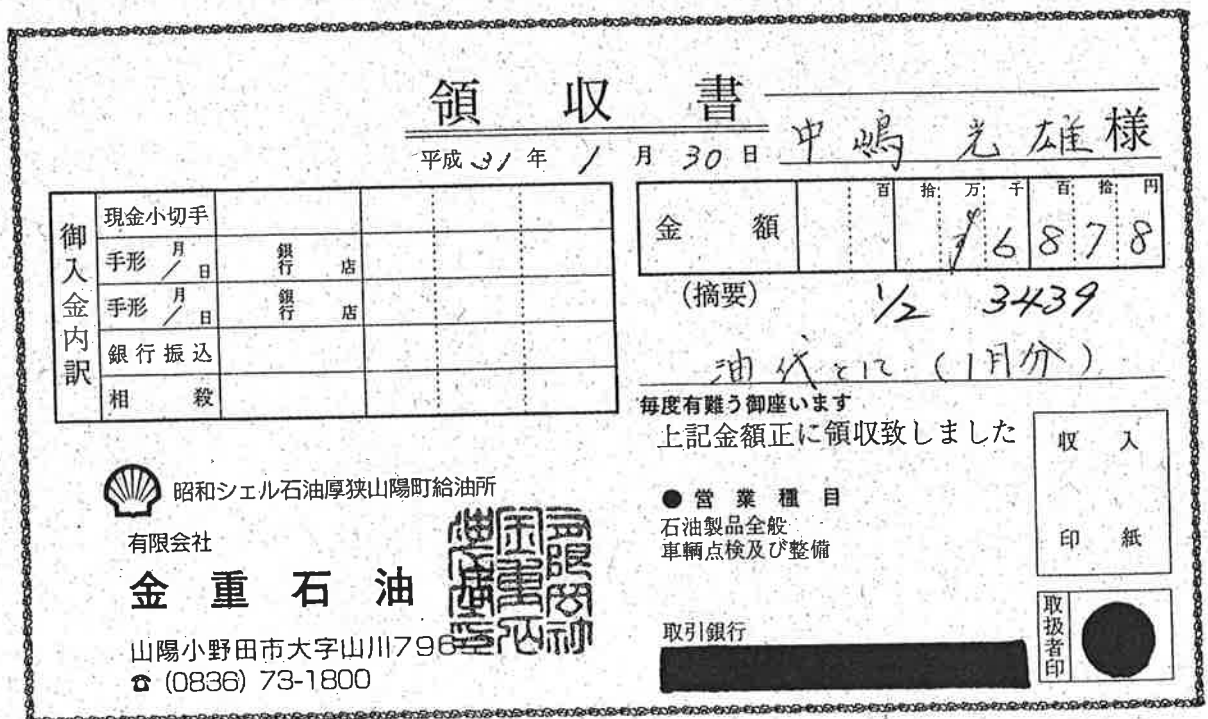 領収書
平成31年1月30日 中嶋光雄様
御入金内訳
現金小切手
手形 月/日 銀行 店
手形 月/日 銀行 店
銀行振込
相殺
金額 百拾万千百拾円
¥6878
(摘要) 1/2 3439
油代として(1月分)
毎度有難う御座います
上記金額正に領収致しました
収入印紙
昭和シェル石油厚狭山陽町給油所
有限会社
金重石油
山陽小野田市大字山川796
☎ (0836) 73-1800
●営業種目
石油製品全般
車輌点検及び整備
取引銀行
取扱者印